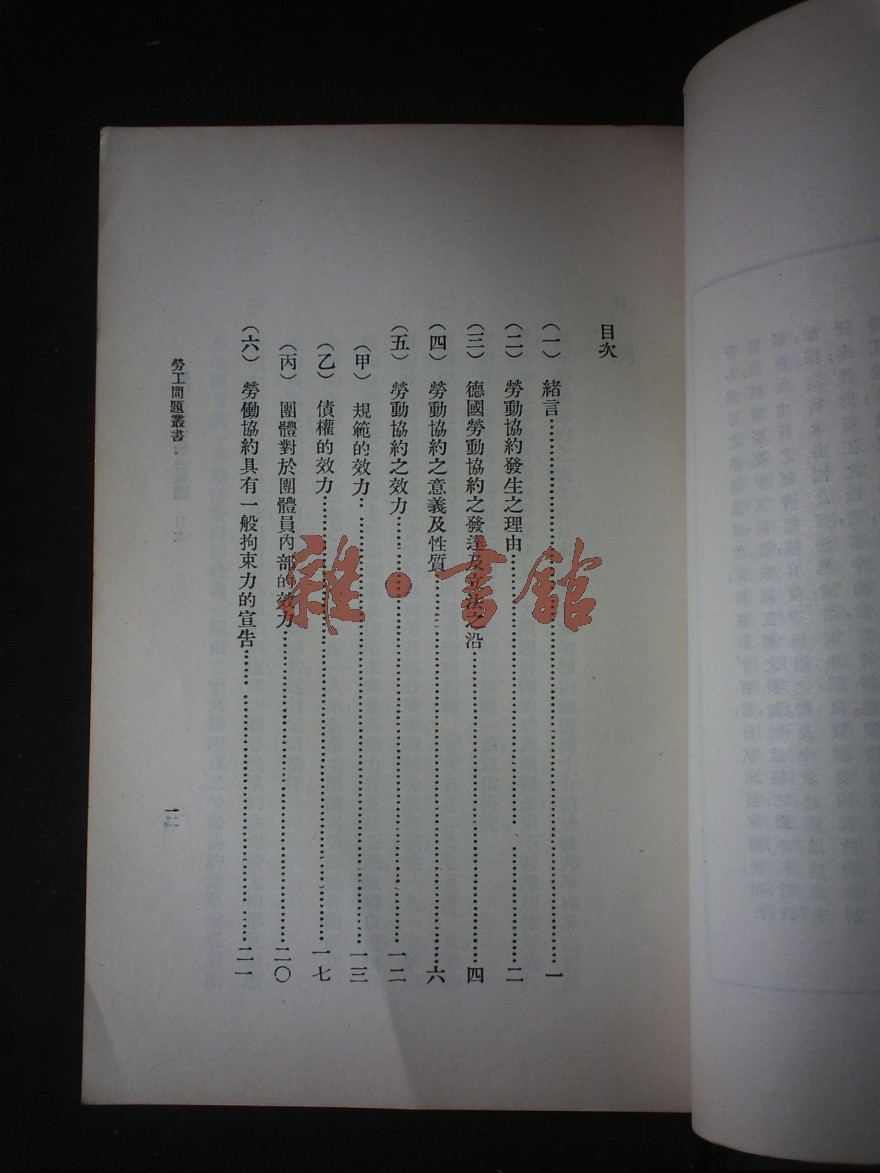 目次
（一）　緒言…………一
（二）　勞動協約發生之理由…………二
（三）　德國勞動協約之發達及立法之沿…………四
（四）　勞動協約之意義及性質…………六
（五）　勞動協約之效力…………一二
（甲）　規範的效力…………一三
（乙）　債權的效力…………一七
（丙）　團體對於團體員內部的效力…………二〇
（六）　勞働協約具有一般拘束力的宣告…………二一
勞工問題叢書
雜·書館